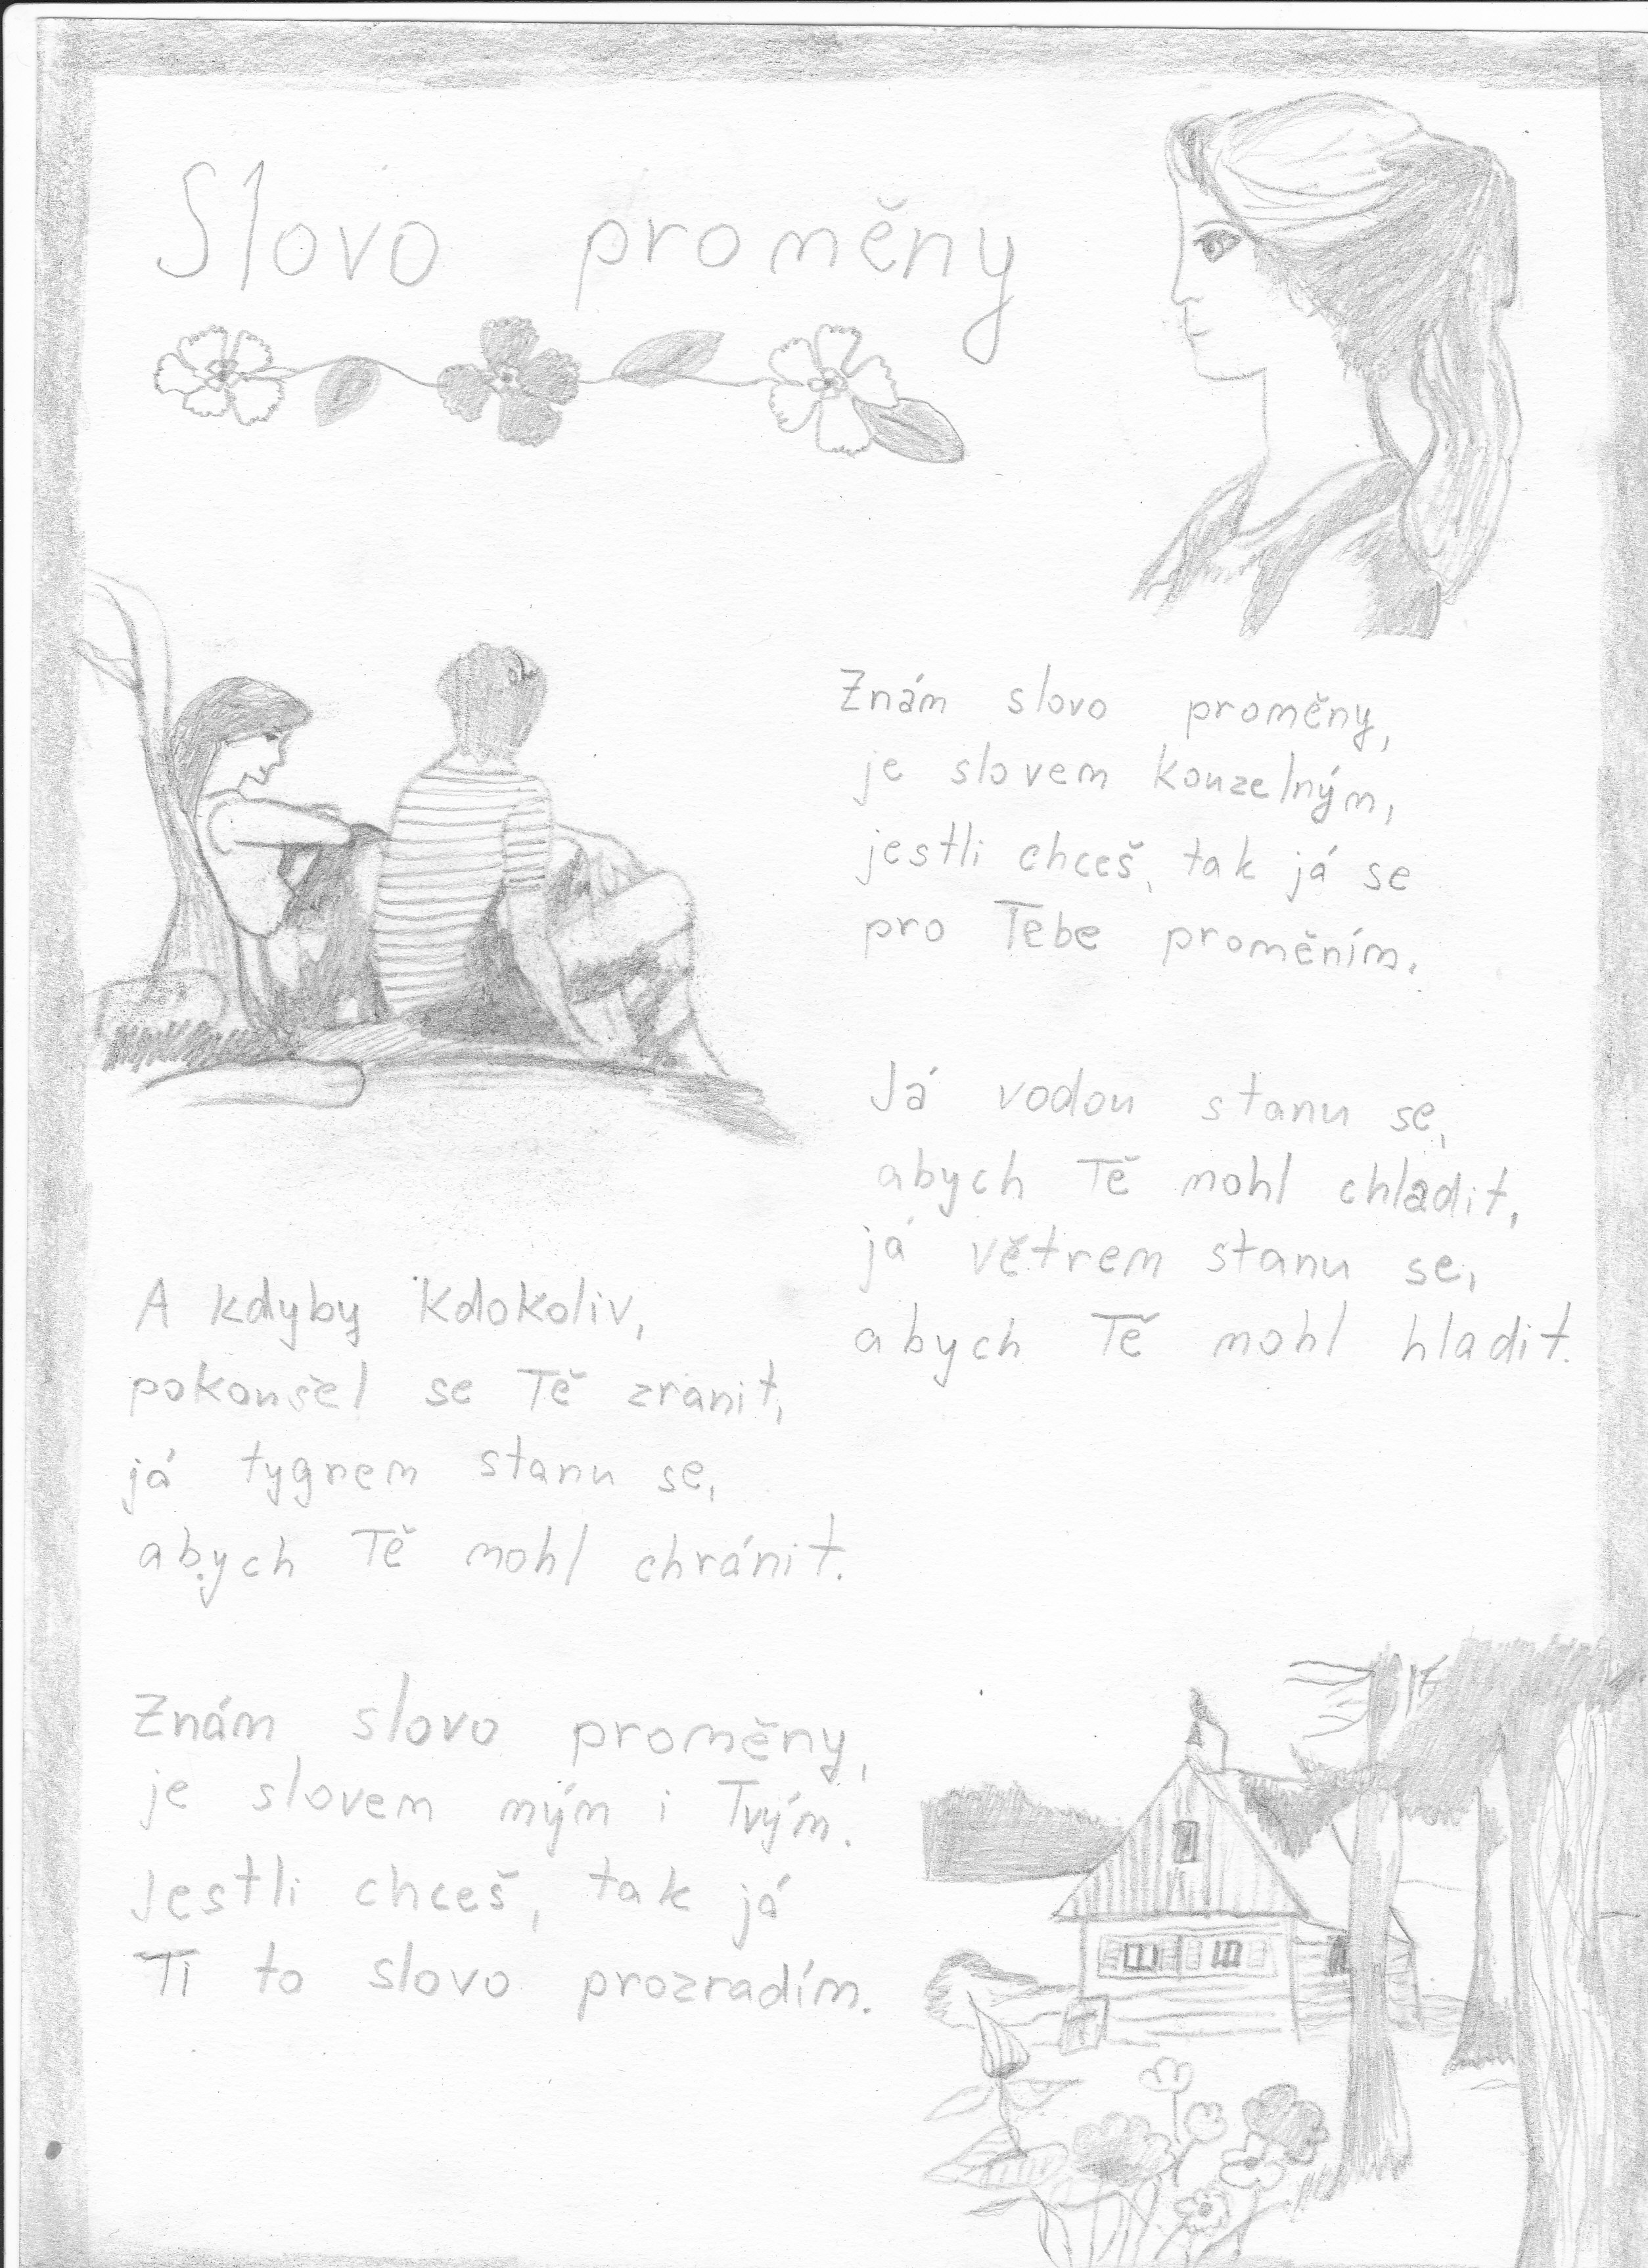 Slovo proměny
Znám slovo proměny,
je slovem kouzelným,
jestli chceš, tak já se
pro Tebe proměním.
Já vodou stanu se,
abych Tě mohl chladit,
já větrem stanu se,
abych Tě mohl hladit.
A kdyby kdokoliv,
pokoušel se Tě zranit,
já tygrem stanu se,
abych Tě mohl chránit.
Znám slovo proměny,
je slovem mým i Tvým.
Jestli chceš, tak já
Ti to slovo prozradím.